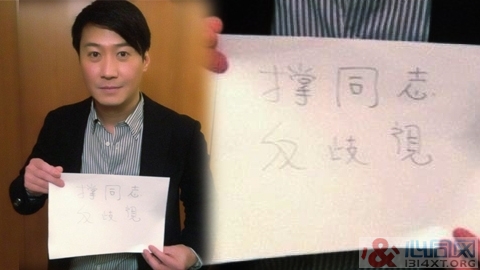 撑同志
反歧視
撑同志
反歧視
心同网
1314XT.ORG